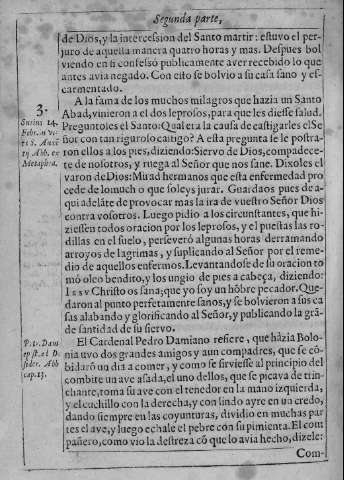 Segunda parte,
de Dios, y la intercession del Santo martir: estuvo el per-
juro de aquella manera quatro horas y mas. Despues bol
viendo en si confessò publicamente aver recebido lo que
antes avia negado. Con esto se bolvio a su casa sano y es-
carmentado.
3.
A la fama de los muchos milagros que hazia un Santo
Abad, vinieron a el dos leprosos, para que les diesse salud.
Preguntoles el Santo: Qual era la causa de castigarles el Se
ñor con tan riguroso castigo? A esta pregunta se le postra-
ron ellos a los pies, diziendo: Siervo de Dios, compadece-
te de nosotros, y ruega al Señor que nos sane. Dixoles el
varon de Dios: Mirad hermanos que esta enfermedad pro
cede de lo mucho que soleys jurar. Guardaos pues de a-
qui adeláte de provocar mas la ira de vuestro Señor Dios
contra vosotros. Luego pidio a los circunstantes, que hi-
ziessen todos oracion por los leprosos, y el puestas las ro-
dillas en el suelo, perseverò algunas horas derramando
arroyos de lagrimas, y suplicando al Señor por el reme-
dio de aquellos enfermos. Levantandose de su oracion to
mó oleo bendito, y los ungio de pies a cabeça, diziendo:
Iesv Christo os sana; que yo soy un hôbre pecador. Que-
daron al punto perfetamente sanos, y se bolvieron a sus ca
sas alabando y glorificando al Señor, y publicando la grã-
de santidad de su siervo.
Surius 14.
Febr. in vi-
ta S. Auxé
tij Abb. ex
Metaphra.
El Cardenal Pedro Damiano refiere, que hàzia Bolo-
nia uvo dos grandes amigos y aun compadres, que se cô-
bidarô un dia a comer, y como se sirviesse al principio del
combite un ave asada, el uno dellos, que se picava de trin-
chante, toma su ave con el tenedor en la mano izquierda,
y el cuchillo con la derecha, y con lindo ayre en un credo,
dando siempre en las coyunturas, dividio en muchas par
tes el ave, y luego echale el pebre con su pimienta. El com
pañero, como vio la destreza cô que lo avia hecho, dizele:
P. Dam
cap. 15.
Com-